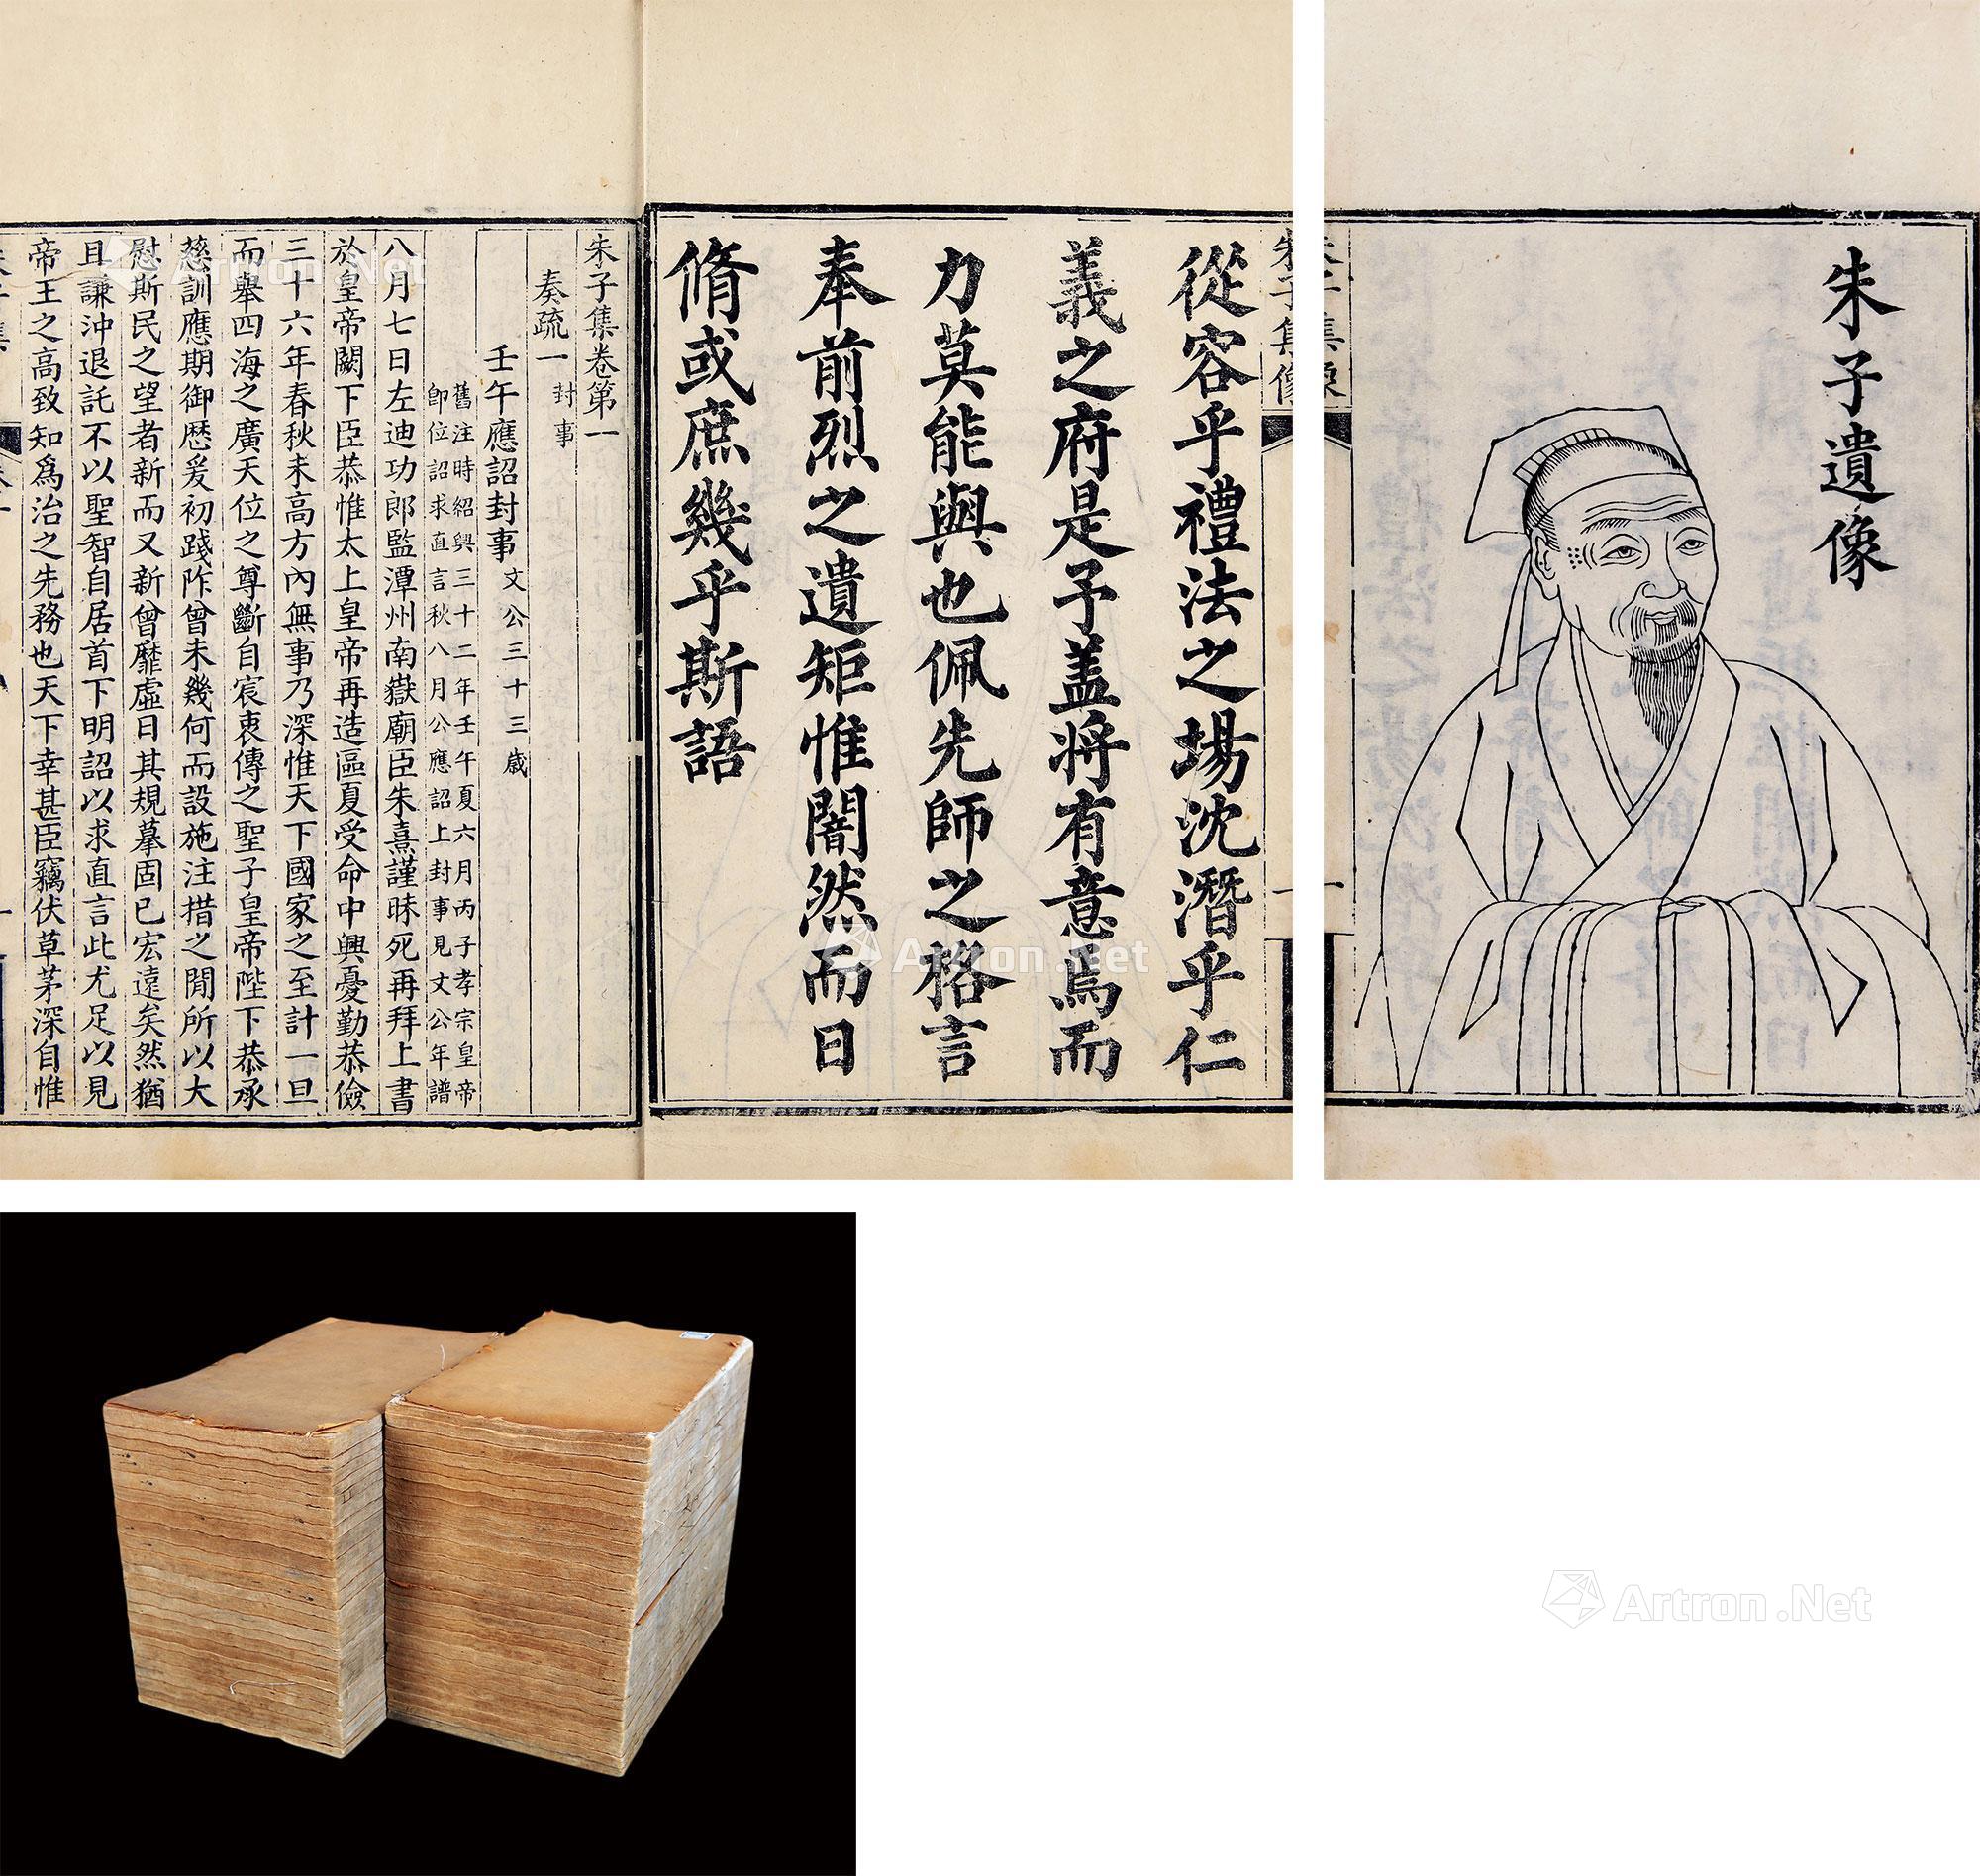 朱子遺像
朱子集像
一
從容乎禮法之場沈潛乎仁
義之府是予蓋將有意焉而
力莫能與也佩先師之格言
奉前烈之遺矩惟闇然而日
脩或庶幾乎斯語
朱子集卷第一
奏疏一 封事
壬午應詔封事 文公三十三歲
舊注時紹興三十二年壬午夏六月丙子孝宗皇帝
卽位詔求直言秋八月公應詔上封事見文公年譜
八月七日左迪功郎監潭州南嶽廟臣朱熹謹昧死再拜上書
於皇帝闕下臣恭惟太上皇帝再造區夏受命中興憂勤恭儉
三十六年春秋未高方內無事乃深惟天下國家之至計一旦
而舉四海之廣天位之尊斷自宸衷傳之聖子皇帝陛下恭承
慈訓應期御歷爰初踐阼曾未幾何而設施注措之閒所以大
慰斯民之望者新而又新曾靡虛日其規摹固已宏遠矣然猶
且謙沖退託不以聖智自居首下明詔以求直言此尤足以見
帝王之高致知爲治之先務也天下幸甚臣竊伏草茅深自惟
Artron.Net
Artron.Net
Artron.Net